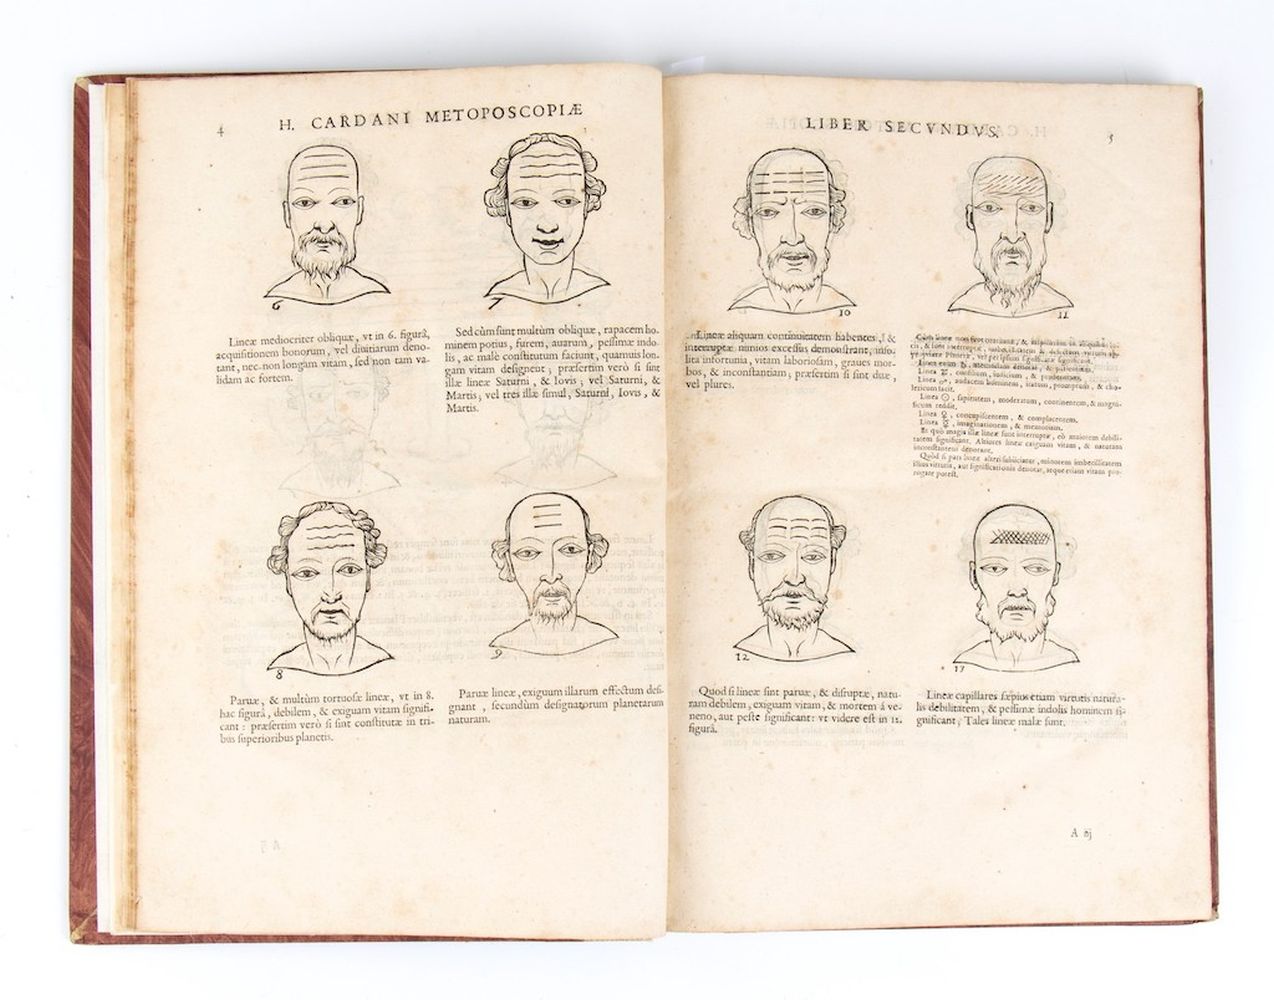 4
H. CARDANI METOPOSCOPIÆ
6
7
Lineæ mediocriter obliquæ, vt in 6. figurâ,
acquisitionem bonorum, vel diuitiarum deno-
tant, nec-non longam vitam, sed non tam va-
lidam ac fortem.
Sed cùm sint multùm obliquæ, rapacem ho-
minem potius, furem, auarum, pessimæ indo-
lis, ac malè constitutum faciunt, quamuis lon-
gam vitam designent; præsertim verò si sint
illæ lineæ Saturni, & Iovis; vel Saturni, &
Martis; vel tres illæ simul, Saturni, Iovis, &
Martis.
8
9
Paruæ, & multùm tortuosæ lineæ, vt in 8.
hac figurâ, debilem, & exiguam vitam signifi-
cant: præsertim verò si sint constitutæ in tri-
bus superioribus planetis.
Paruæ lineæ, exiguum illarum effectum desi-
gnant, secundùm designatorum planetarum
naturam.
LIBER SECVNDVS.
5
10
11
Lineæ aliquam continuitatem habentes, &
interruptæ nimios excessus demonstrant, inso-
lita infortunia, vitam laboriosam, graues mor-
bos, & inconstantiam; præsertim si sint duæ,
vel plures.
Cùm lineæ non sint continuæ, &
Linea ♂, audacem hominem, iratum, promptum, & cho-
lericum facit.
Linea ☉, sapientem, moderatum, continentem, & magni-
ficum reddit.
Linea ♀, concupiscentem, & complacentem.
Linea ☿, imaginationem, & memoriam.
Et quò magis illæ lineæ sunt interruptæ, eò maiorem debili-
tatem significant. Altiores lineæ exiguam vitam, & naturam
inconstantem denotant.
Quòd si pars lineæ alteri subiiciatur, minorem imbecillitatem
illius virtutis, aut significationis denotat, atque etiam vitam pro-
rogare potest.
12
13
Quod si lineæ sint paruæ, & disruptæ, natu-
ram debilem, exiguam vitam, & mortem à ve-
neno, aut peste significant: vt videre est in 12.
figurâ.
Lineæ capillares sæpius etiam virtutis natura-
lis debilitatem, & pessimæ indolis hominem si-
gnificant; Tales lineæ malæ sunt.
A iij